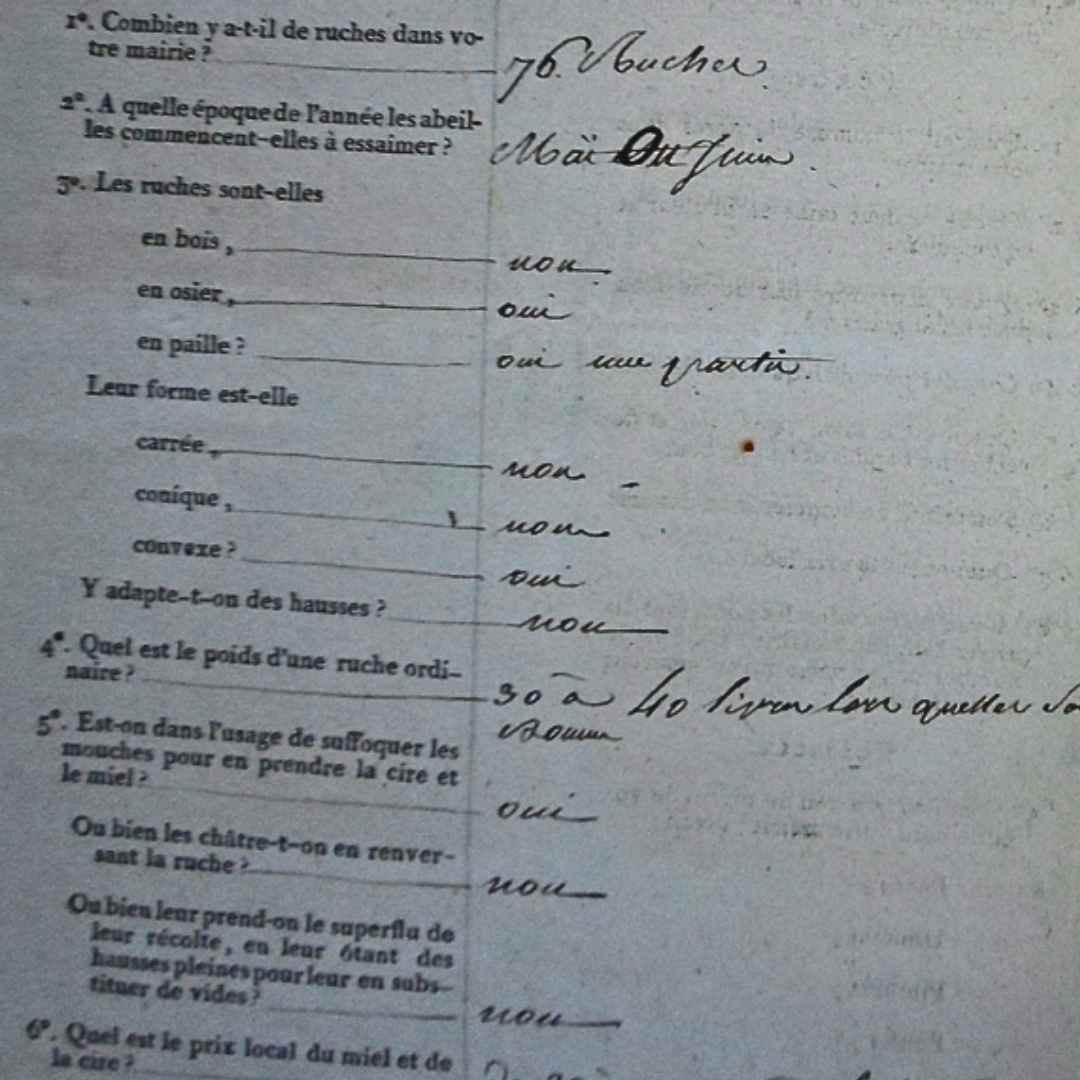 1º. Combien y a-t-il de ruches dans vo-
tre mairie ? 76. Ruches
2º. A quelle époque de l'année les abeil-
les commencent-elles à essaimer ? Maï Ou Juin.
3º. Les ruches sont-elles
en bois, non
en osier, oui
en paille ? oui une partie.
Leur forme est-elle
carrée, non
conique, non
convexe ? oui
Y adapte-t-on des hausses ? non
4º. Quel est le poids d'une ruche ordi-
naire ? 30 à 40 livres
5º. Est-on dans l'usage de suffoquer les
mouches pour en prendre la cire et
le miel ? oui
Ou bien les châtre-t-on en renver-
sant la ruche ? non
Ou bien leur prend-on le superflu de
leur récolte, en leur ôtant des
hausses pleines pour leur en subs-
tituer de vides ? non
6º. Quel est le prix local du miel et de
la cire ?